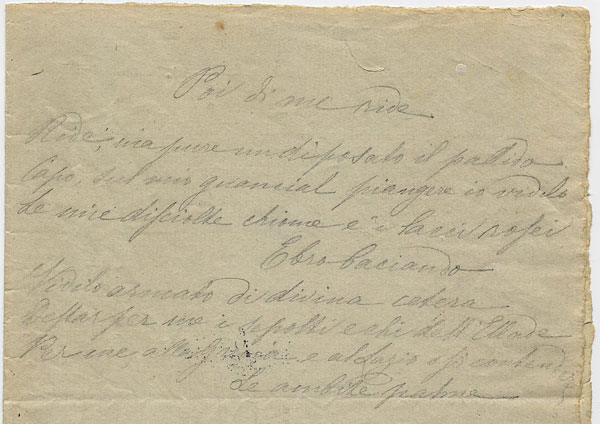 Poi di me ride
Ride; ma pure un dì posato il pallido
Capo, sul mio guancial piangere io vidilo
Le mie disciolte chiome e i lacci rosei
Ebro baciando
Vidilo armato di divina cetera
Destar per me i sepolti echi dell'Ellade
Per me a e al Lazio contender
Le ambite palme